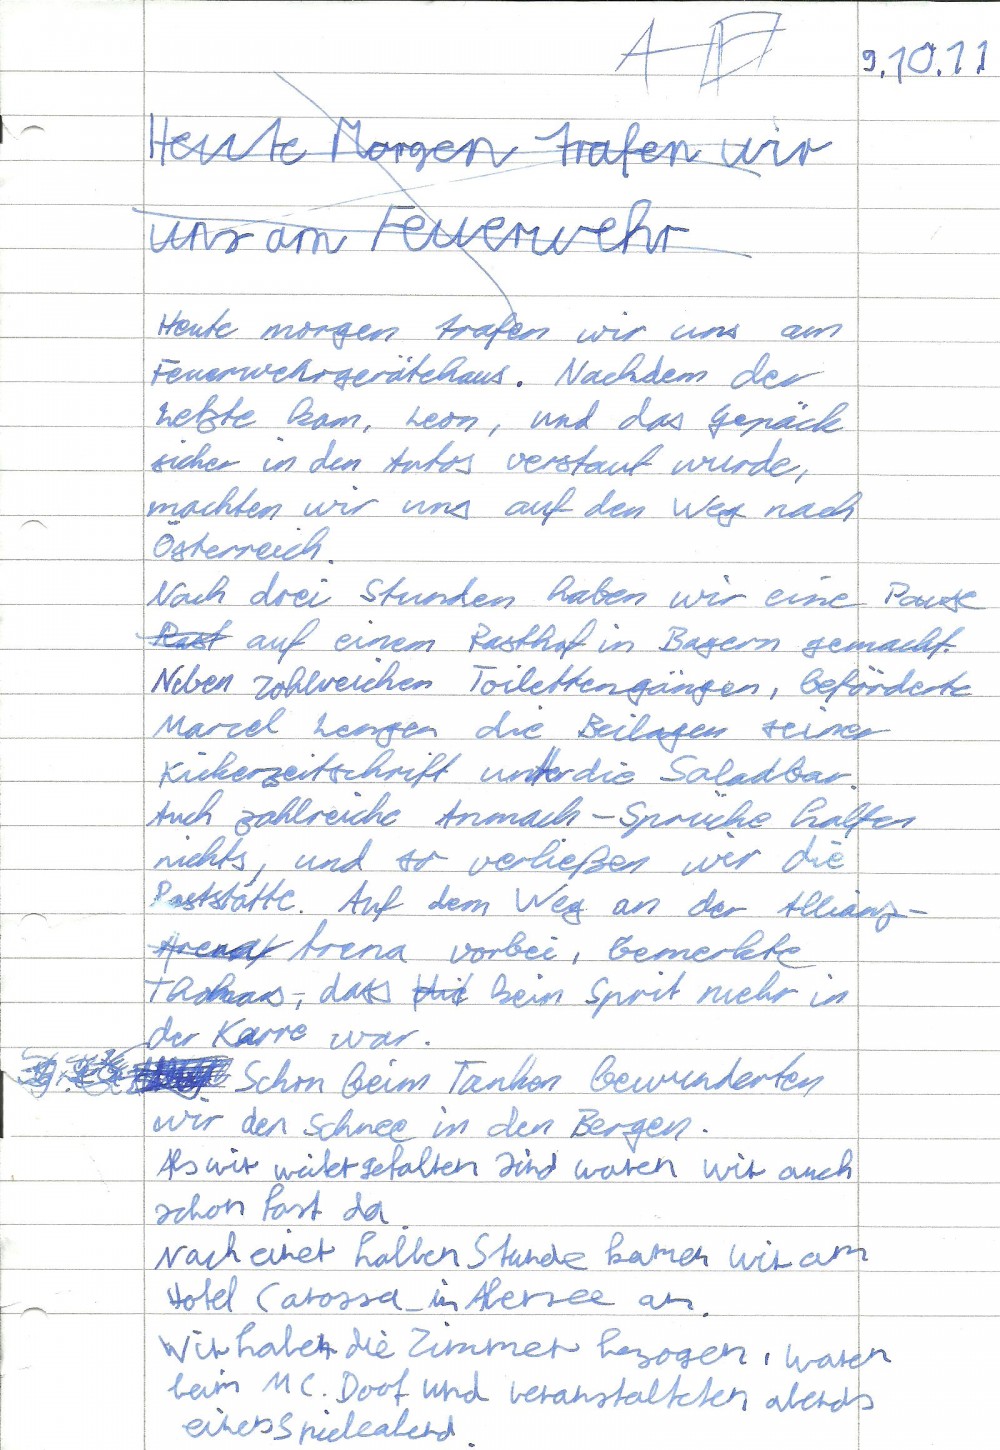 9.10.11
Heute Morgen trafen wir
uns am Feuerwehr
Heute morgen trafen wir uns am
Feuerwehrgerätehaus. Nachdem der
Letzte kam, Leon, und das Gepäck
sicher in den Autos verstaut wurde,
machten wir uns auf den Weg nach
Österreich.
Nach drei Stunden haben wir eine Pause
Rast auf einem Rasthof in Bayern gemacht.
Neben zahlreichen Toilettengängen, beförderte
Marcel Lengen die Beilagen seiner
Kickerzeitschrift unter die Saladbar.
Auch zahlreiche Anmach-Sprüche halfen
nichts, und so verließen wir die
Raststätte. Auf dem Weg an der Allianz-
Arena Arena vorbei, bemerkte
Thomas, dass kein Sprit mehr in
der Karre war.
Schon beim Tanken bewunderten
wir den Schnee in den Bergen.
Als wir weitergefahren sind waren wir auch
schon fast da.
Nach einer halben Stunde kamen wir am
Hotel Carossa in Abersee an.
Wir haben die Zimmer bezogen, waren
beim MC. Doof und veranstalteten abends
einen Spieleabend.